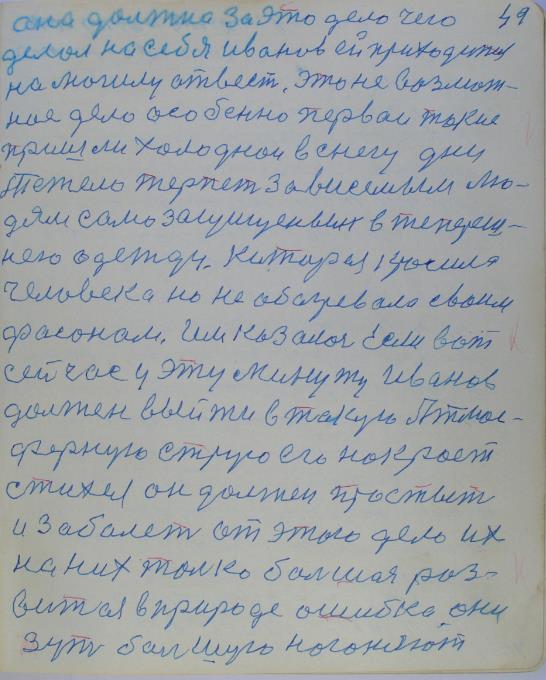 49
ана должна за это дело чего
делол на себя Иванов ей приходится
на могилу отвест. Это не возмож-
ное дело особенно первои такие
пришли холоднои в снегу дни
тежело терпет зависемым лю-
дям само защищеных в тепереш-
нею одежду. Каторая красила
человека но не обагревала своим
фасонам. Им казалос если вот
сейчас у эту минуту Иванов
должен выйти в такую Атмос-
ферную струю его накроет
стихея он должен простыт
и забалет от этого дело их
на них толко балшая роз-
витая в природе ошибка они
зут балшую нагоняют